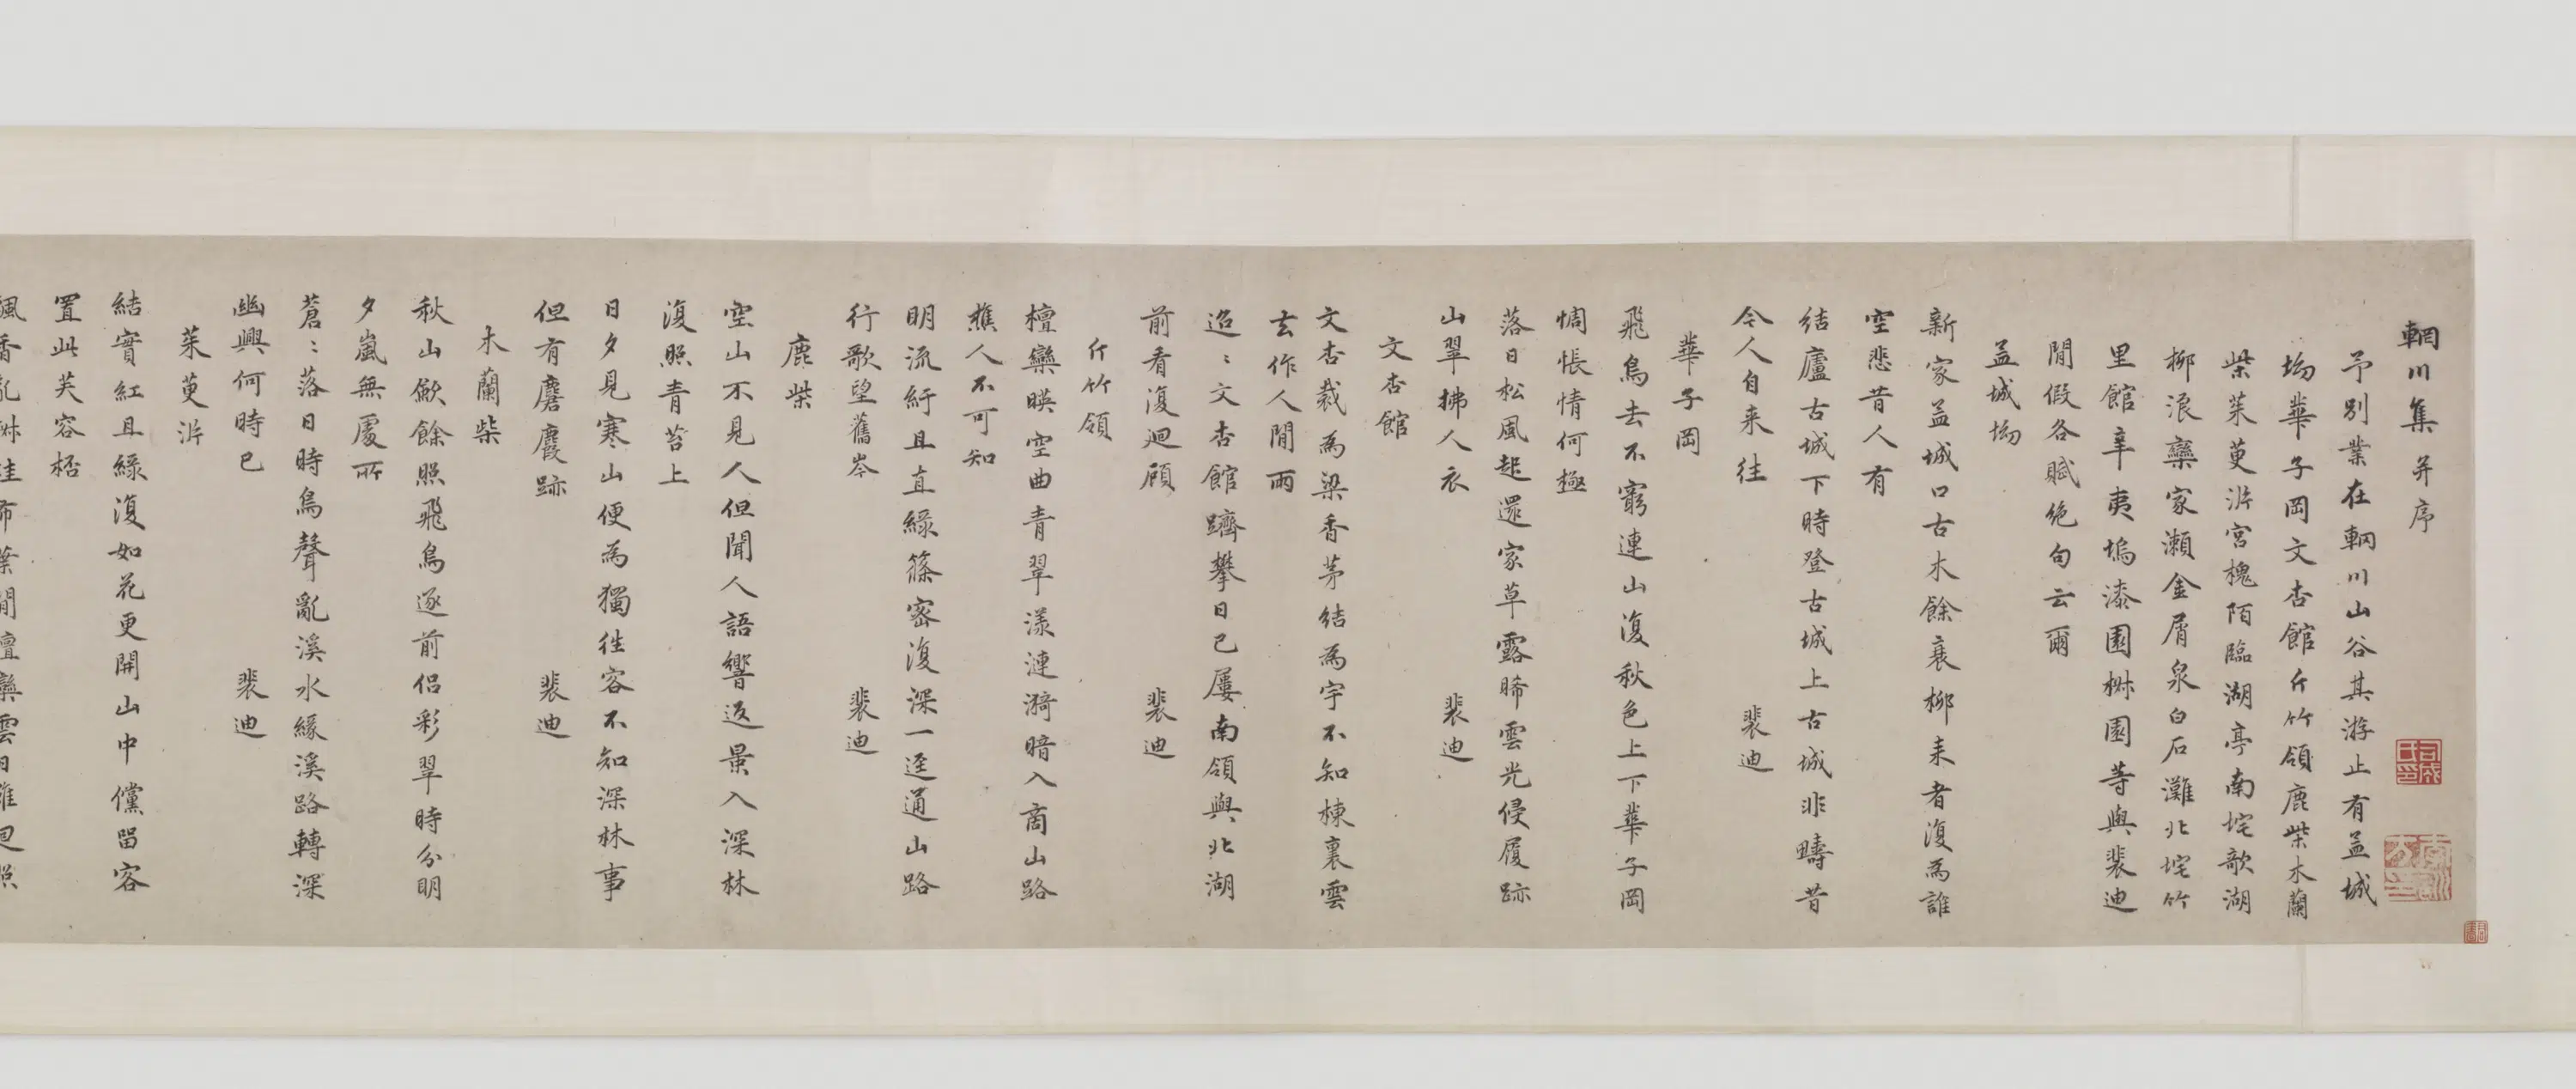 輞川集并序
予別業在輞川山谷其游止有孟城
坳華子岡文杏館斤竹領鹿柴木蘭
柴茱萸沜宮槐陌臨湖亭南垞歌湖
柳浪欒家瀨金屑泉白石灘北垞竹
里館辛夷塢漆園椒園等與裴迪
閒假各賦絶句云爾
孟城坳
新家孟城口古木餘衰柳耒者復為誰
空悲昔人有
结廬古城下時登古城上古城非疇昔
今人自来往 裴迪
華子岡
飛鳥去不窮連山復秋色上下華子岡
惆悵情何極
落日松風起還家草露晞雲光侵履跡
山翠拂人衣 裴迪
文杏館
文杏裁為梁香茅結為宇不知棟裏雲
去作人閒雨
迢〻文杏館躋攀日已屢南領與北湖
前看復迴顧 裴迪
斤竹領
檀欒暎空曲青翠漾漣漪暗入商山路
樵人不可知
明流紆且直綠篠密復深一逕通山路
行歌望舊岑 裴迪
鹿柴
空山不見人但聞人語響返景入深林
復照青苔上
日夕見寒山便為獨往容不知深林事
但有麏麚跡 裴迪
木蘭柴
秋山斂餘照飛鳥逐前侣彩翠時分明
夕嵐無處所
蒼〻落日時鳥聲亂溪水緣溪路轉深
幽興何時已 裴迪
茱萸沜
結實紅且綠復如花更開山中儻留容
置此芙容桮